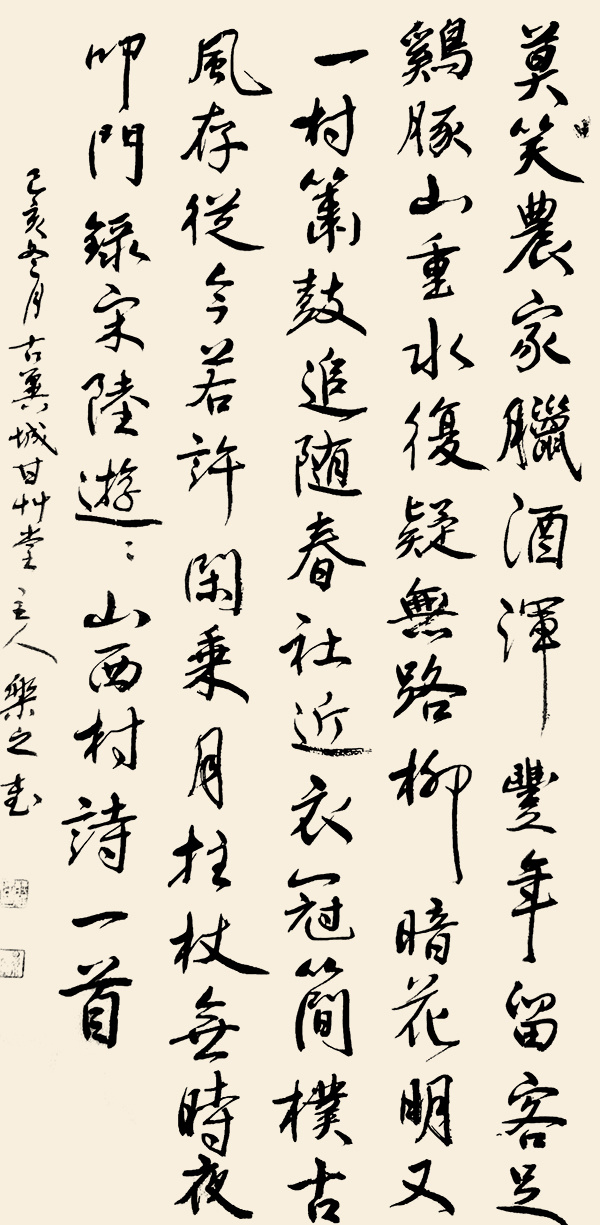 莫笑農家臘酒渾豐年留客足
鷄豚山重水復疑無路柳暗花明又
一村簫鼓追随春社近衣冠簡樸古
風存從今若許閑乘月拄杖無時夜
叩門録宋陸遊〻山西村詩一首
己亥冬月古翼城甘艸堂主人樂之書